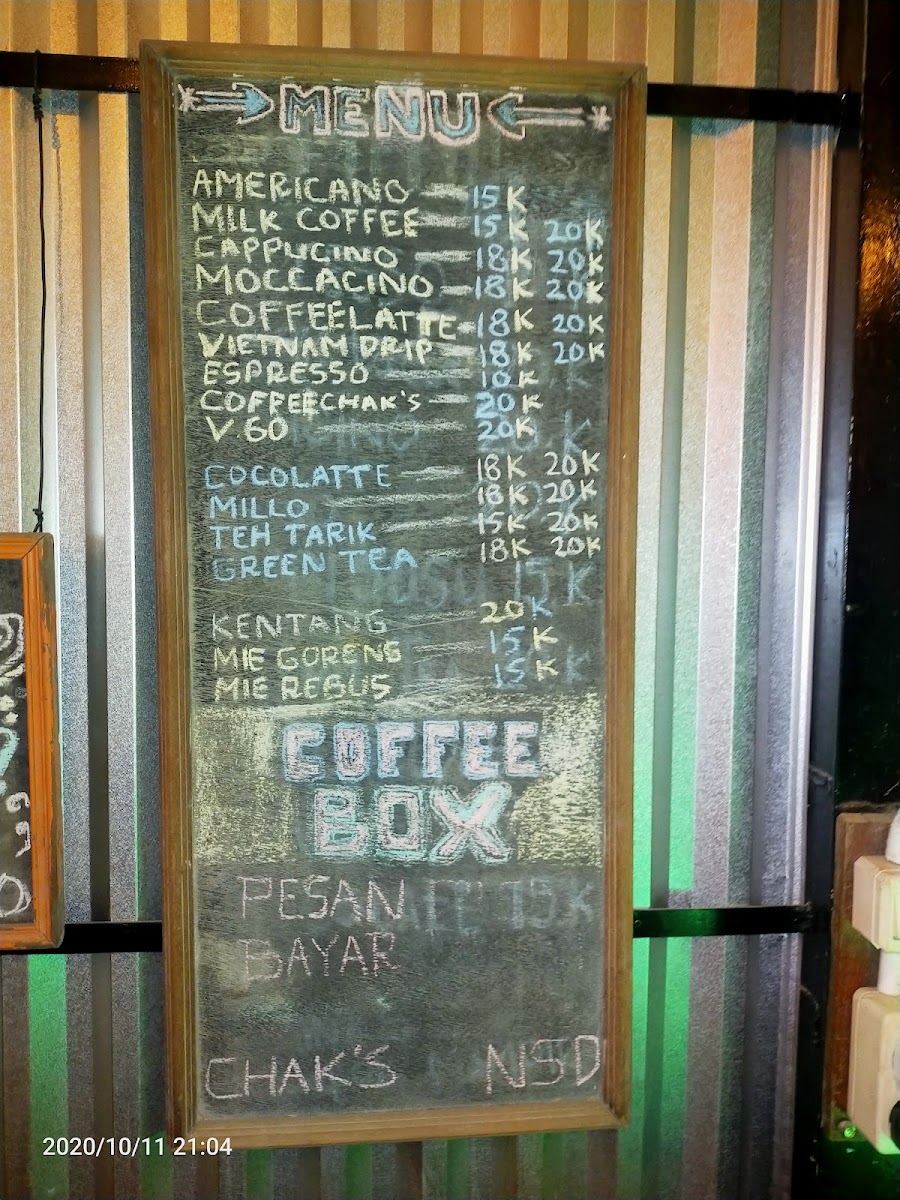 MENU
AMERICANO 15K
MILK COFFEE 15K 20K
CAPPUCINO 18K 20K
MOCCACINO 18K 20K
COFFEELATTE 18K 20K
VIETNAM DRIP 18K 20K
ESPRESSO 10K
COFFEECHAK'S 20K
V.60 20K
COCOLATTE 18K 20K
MILLO 18K 20K
TEH TARIK 15K 20K
GREEN TEA 18K 20K
KENTANG 20K
MIE GORENG 15K
MIE REBUS 15K
COFFEE
BOX
PESAN
BAYAR
CHAK'S NSD
2020/10/11 21:04